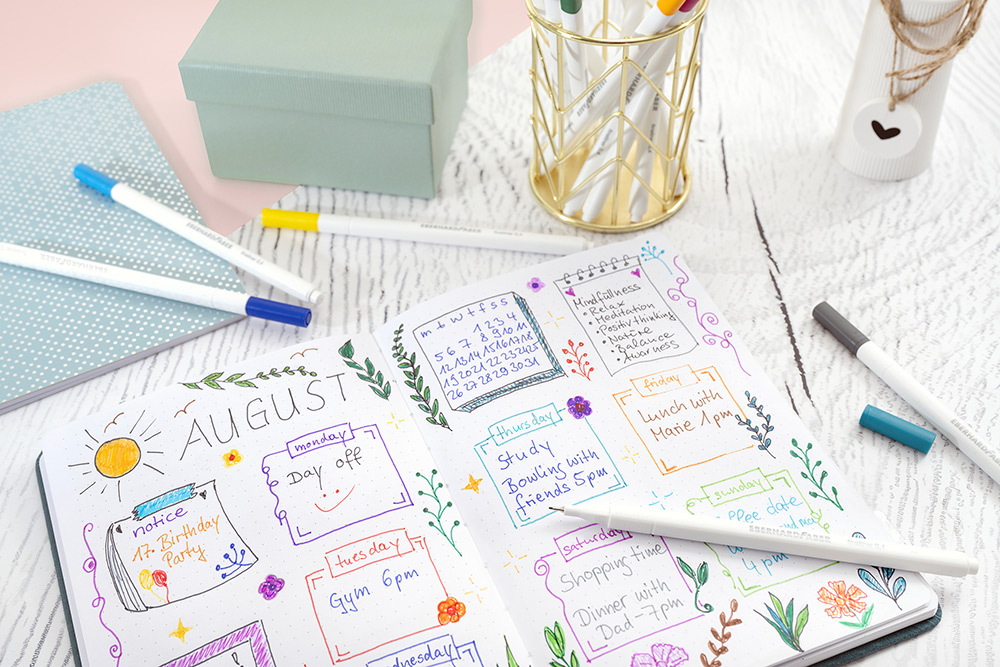 AUGUST
notice
17. Birthday
Party
monday
Day off
tuesday
Gym 6pm
m t w t f s s
1 2 3 4
5 6 7 8 9 10 11
12 13 14 15 16 17 18
19 20 21 22 23 24 25
26 27 28 29 30 31
Mindfullness
• Relax
• Meditation
• Positivthinking
• Nature
• Balance
• Awarness
thursday
Study
Bowling with
friends 5pm
friday
Lunch with
Marie 1pm
saturday
Shopping time
Dinner with
Dad - 7pm
sunday
date
4pm
EBERHARD FABER
EBERHARD FABER